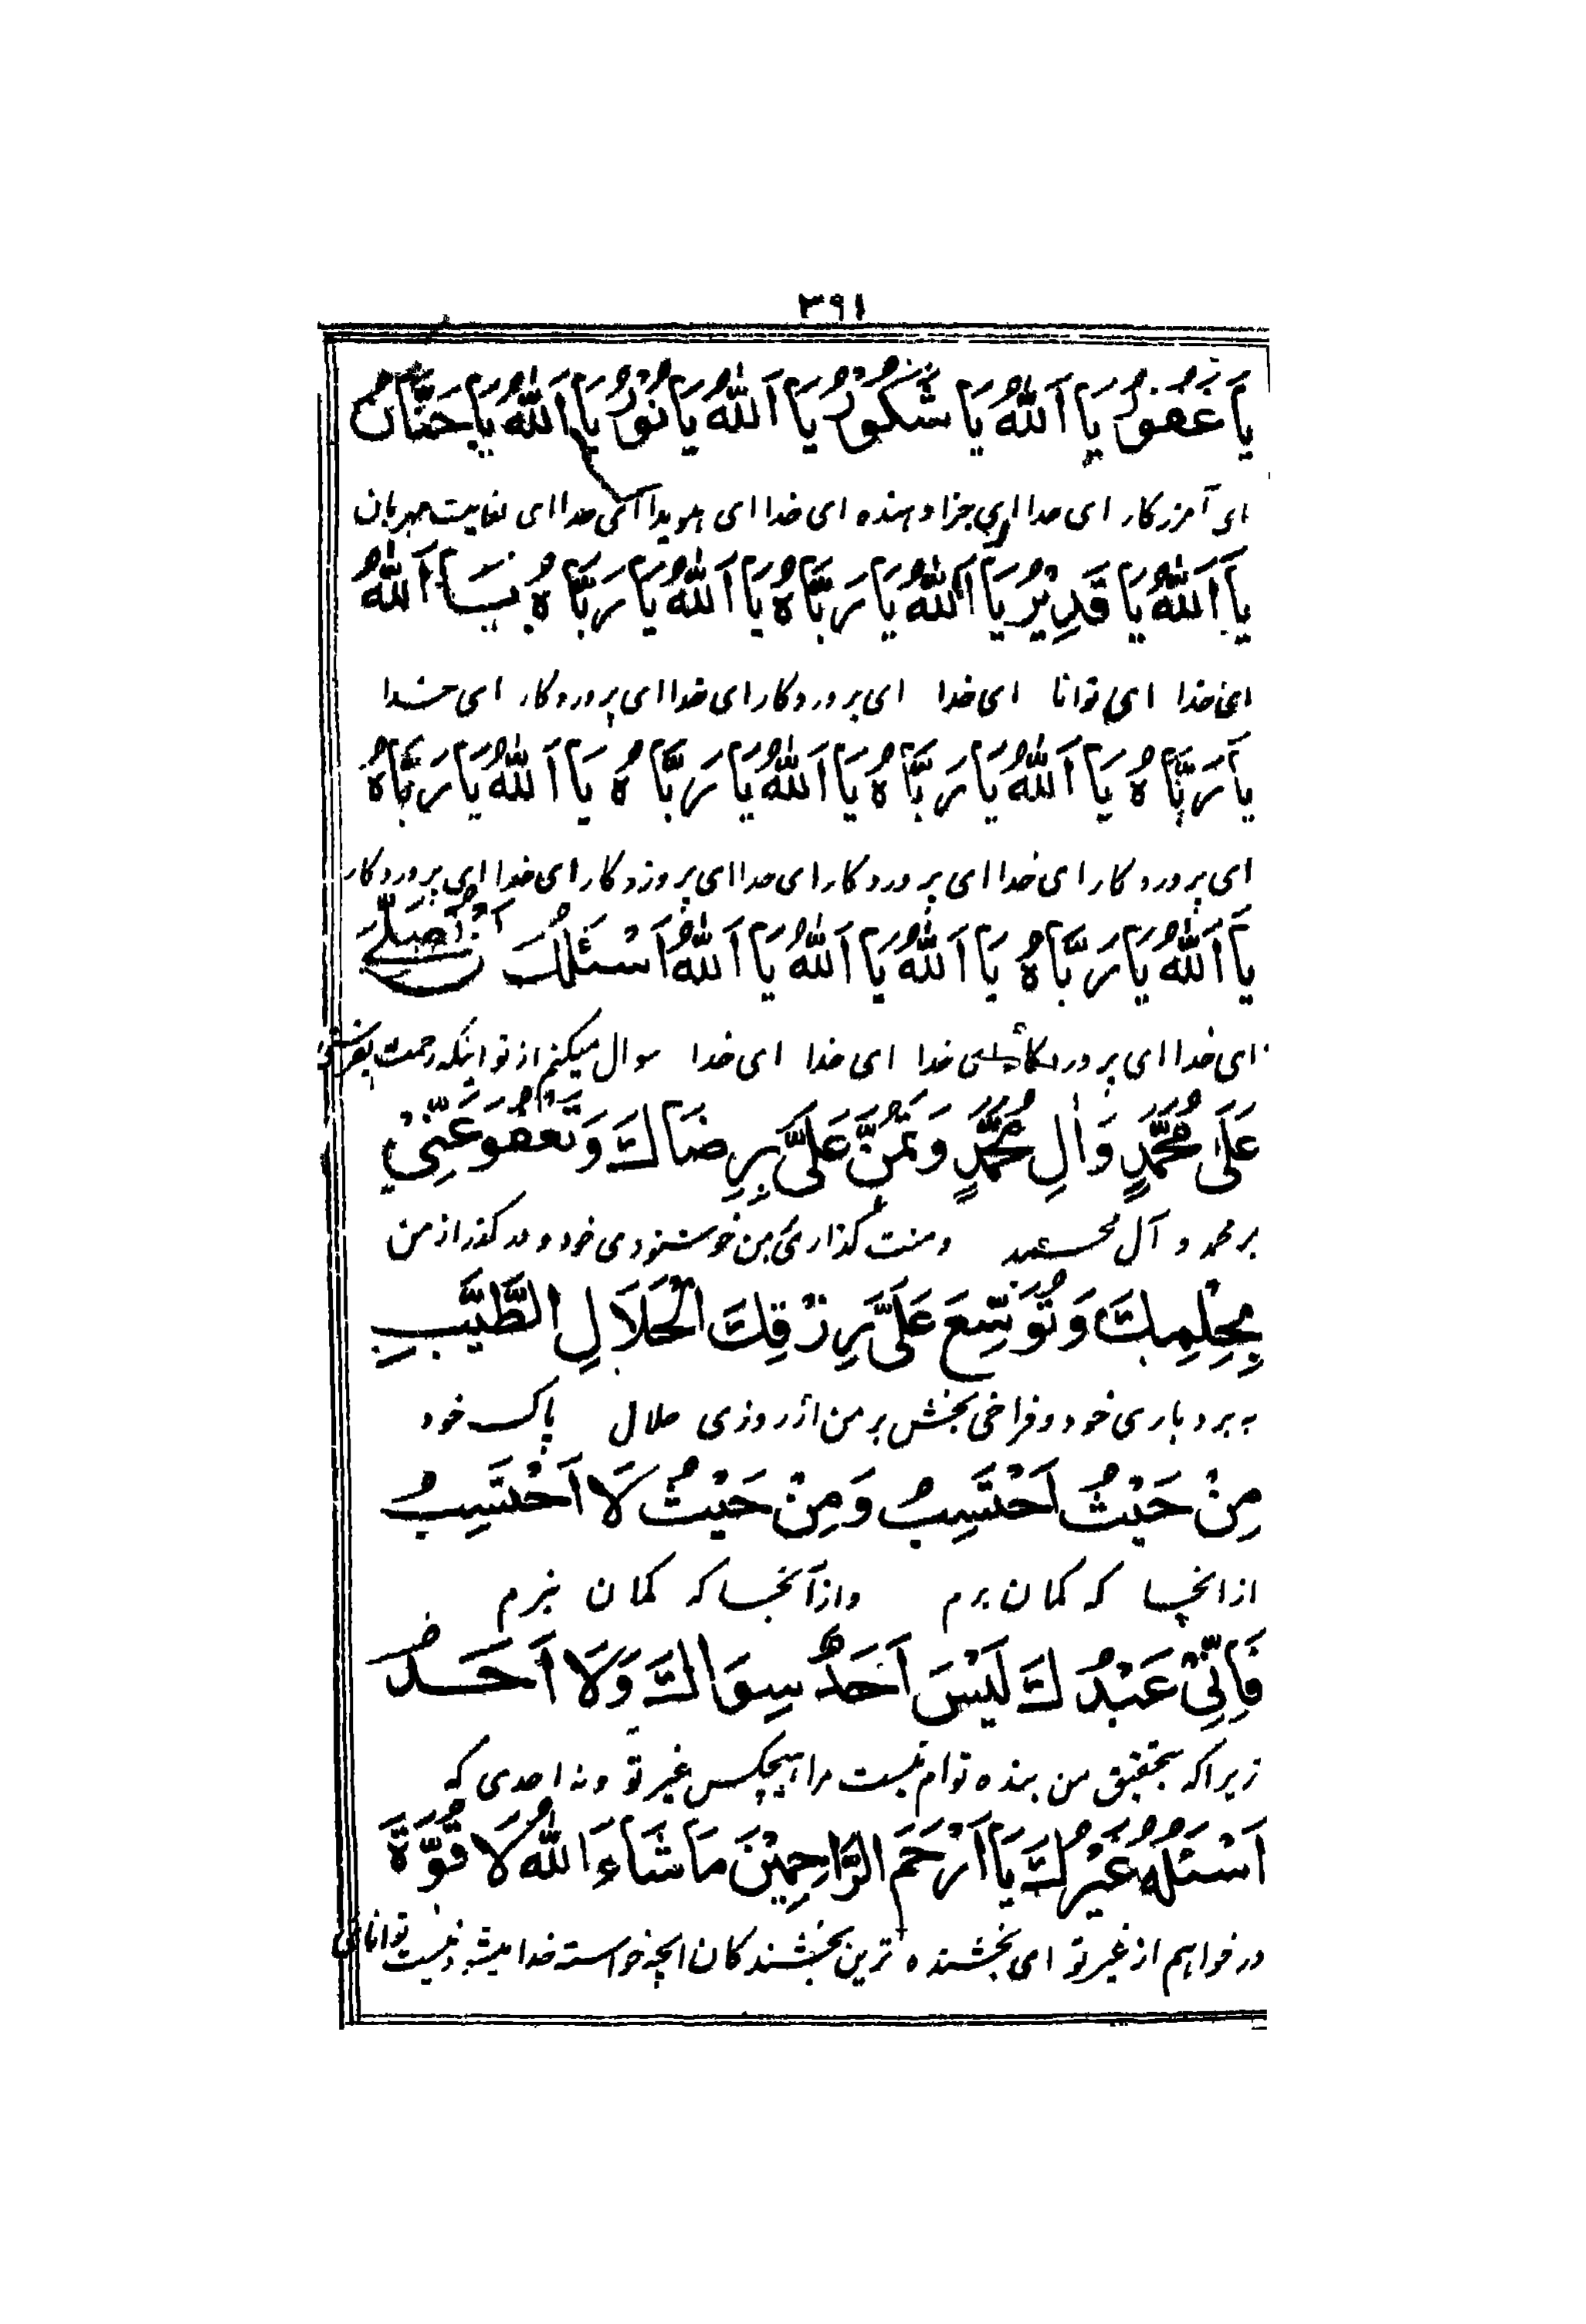 ٣٩١
يَا غَفُورُ يَا اَللّٰهُ يَا شَكُوْرُ يَا اَللّٰهُ يَا نُوْرُ يَا اَللّٰهُ يَا حَنَّانُ
ای آمرزکار ای خدا ای جزا دهنده ای خدا ای هویدا ای خدا ای نهایت مهربان
يَا اَللّٰهُ يَا قَدِيْرُ يَا اَللّٰهُ يَا رَبَّاهُ يَا اَللّٰهُ يَا رَبَّاهُ يَا اَللّٰهُ
ای خدا ای توانا ای خدا ای پروردکار ای خدا ای پروردکار ای خدا
يَا رَبَّاهُ يَا اَللّٰهُ يَا رَبَّاهُ يَا اَللّٰهُ يَا رَبَّاهُ يَا اَللّٰهُ يَا رَبَّاهُ
ای پروردکار ای خدا ای پروردکار ای خدا ای پروردکار ای خدا ای پروردکار
يَا اَللّٰهُ يَا رَبَّاهُ يَا اَللّٰهُ يَا اَللّٰهُ يَا اَللّٰهُ اَسْئَلُكَ اَنْ تُصَلِّيَ
ای خدا ای پروردکار ای خدا ای خدا ای خدا سوال میکنم از تو اینکه رحمت بفرستی
عَلَى مُحَمَّدٍ وَاٰلِ مُحَمَّدٍ وَتَمُنَّ عَلَيَّ بِرِضَاكَ وَتَعْفُوَ عَنِّيْ
بر محمد و آل محمد و منت گذاری بمن خوشنودی خود و در کذر از من
بِحِلْمِكَ وَتُوَسِّعَ عَلَيَّ بِرِزْقِكَ الْحَلَالِ الطَّيِّبِ
به بردباری خود و فراخی بخش بر من از روزی حلال پاک خود
مِنْ حَيْثُ اَحْتَسِبُ وَمِنْ حَيْثُ لَا اَحْتَسِبُ
از انجا که کمان برم و از آنجا که کمان نبرم
فَاِنِّيْ عَبْدُكَ لَيْسَ اَحَدٌ سِوَاكَ وَلَا اَحَدٌ
زیرا که بتحقیق من بنده توام نیست مرا هیچکس غیر تو و نه احدی که
اَسْئَلُهُ غَيْرُكَ يَا اَرْحَمَ الرَّاحِمِيْنَ مَا شَاءَ اللّٰهُ لَا قُوَّةَ
در خواهم از غیر تو ای بخشنده ترین بخشندکان انچه خواسته خدا میشود نیست توانائی